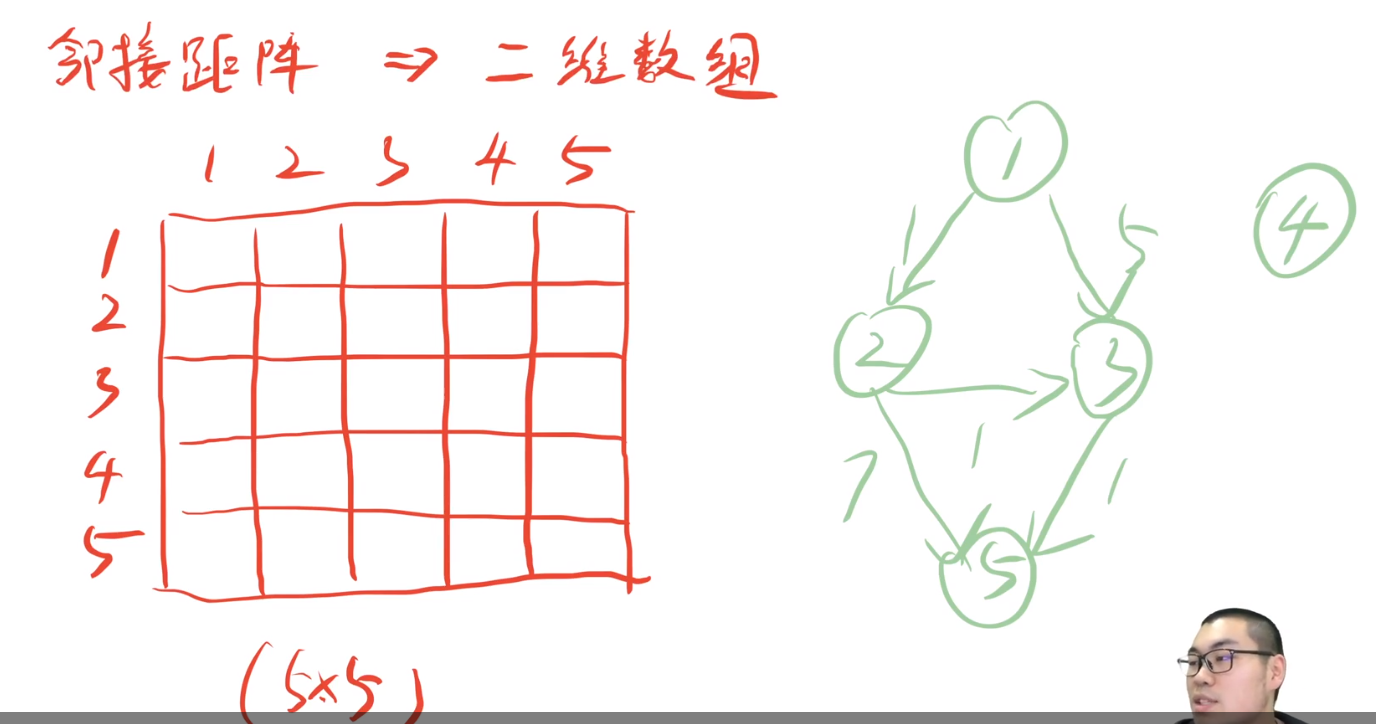 邻接距阵 => 二维数组
1 2 3 4 5
1
2
3
4
5
(5×5)
1
4
1 5
2 3
7 1 1
5